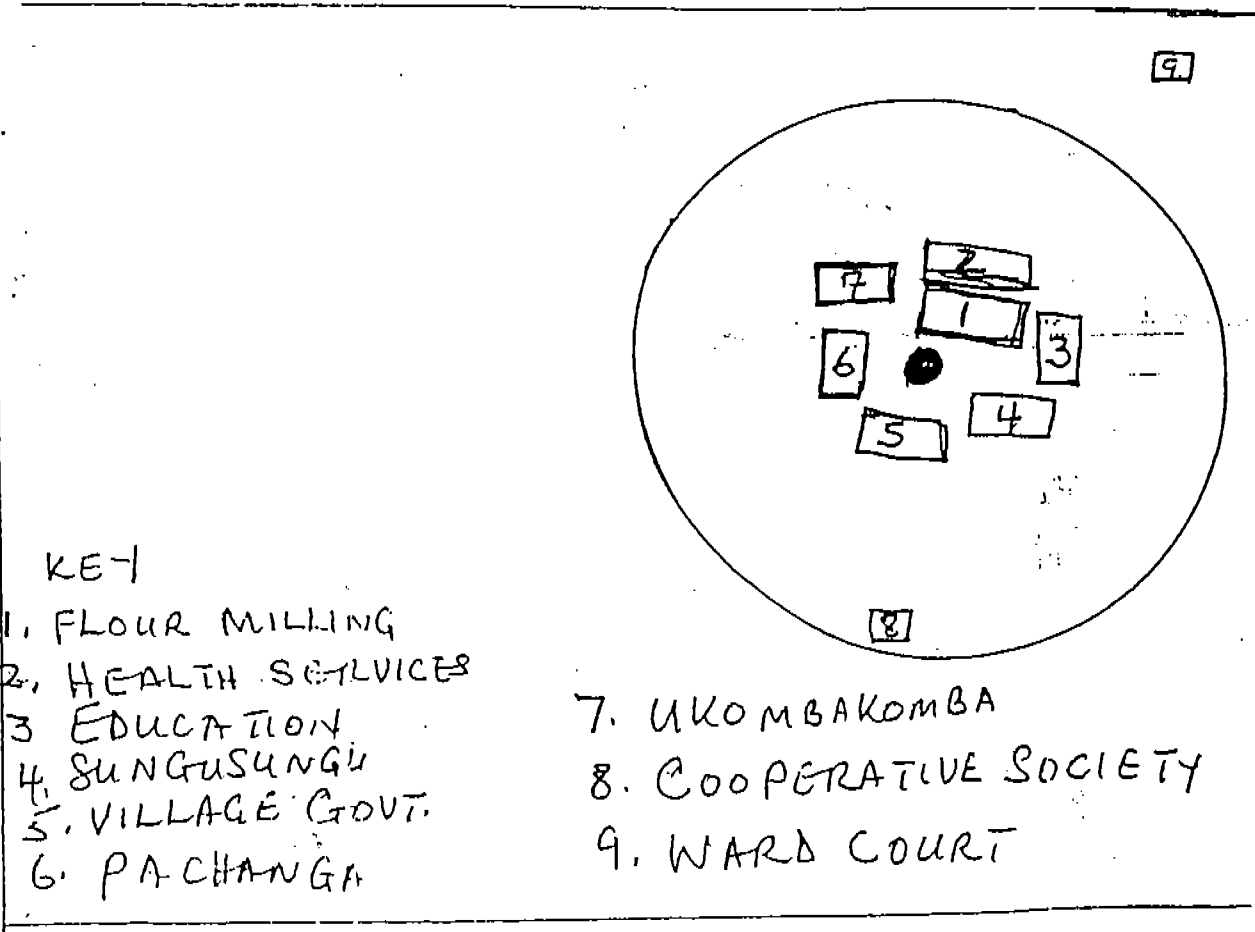 9.
2
7
1
3
6
4
5
8
KEY
1. FLOUR MILLING
2. HEALTH SERVICES
3 EDUCATION
4. SUNGUSUNGU
5. VILLAGE GOVT.
6. PACHANGA
7. UKOMBAKOMBA
8. COOPERATIVE SOCIETY
9. WARD COURT